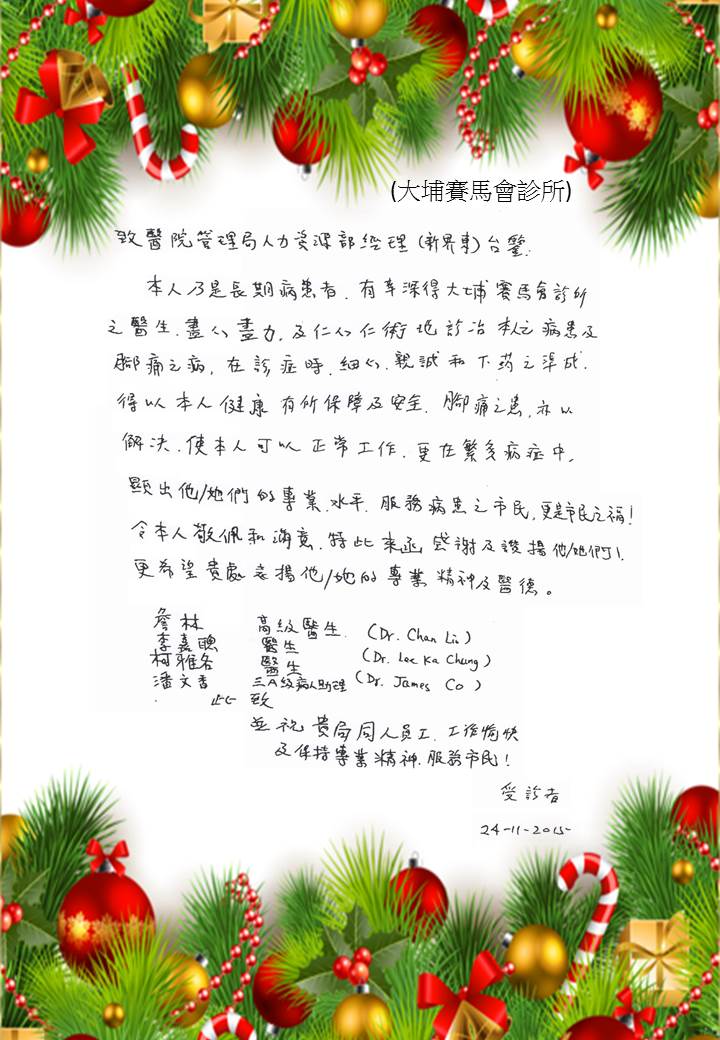 (大埔賽馬會診所)
致醫院管理局人力資源部經理(新界東)台鑒:
本人乃是長期病患者.有幸深得大埔賽馬會診所
之醫生.盡心盡力.及仁心仁術地診治本人之病患及
腳痛之病,在診症時.細心.親誠和下药之準成.
得以本人健康有所保障及安全.腳痛之患,亦以
解決.使本人可以正常工作.更在繁多病症中,
顯出他/她們的專業.水平.服務病患之市民,更是市民之福!
令本人敬佩和滿意.特此來函感謝及讚揚他/她們!
更希望貴處表揚他/她的專業精神及醫德。
詹林 高級醫生. (Dr. Chan Lin)
李嘉聰 醫生 (Dr. Lee Ka Chung)
柯雅各 醫生 (Dr. James Co)
潘文香 三A級病人助理
此致
並祝貴局同人員工.工作愉快
及保持專業精神.服務市民!
受診者
24-11-2015